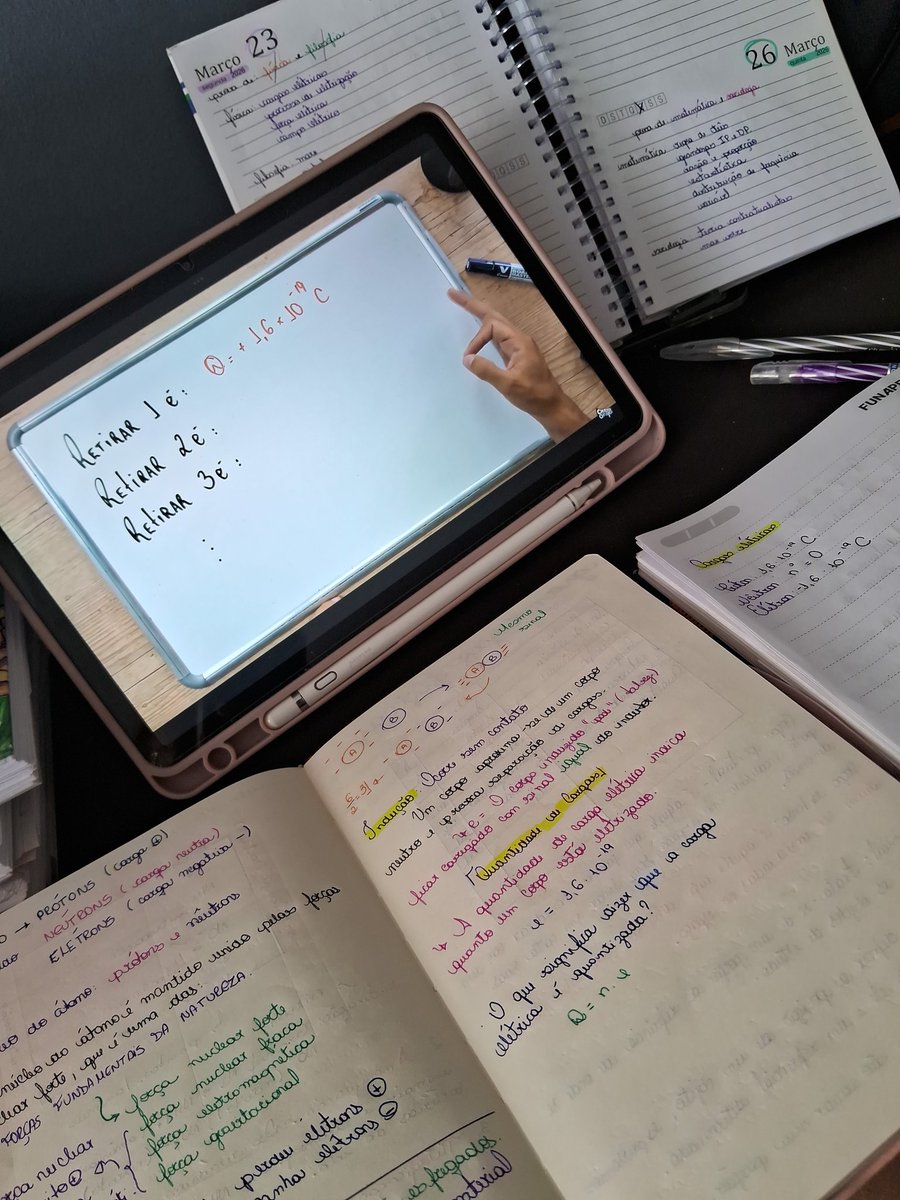 Março 23
segunda 2026
prova de física e filosofia
física: cargas elétricas
processo de eletrização
força elétrica
campo elétrico
filosofia
26 Março
quinta 2026
D S T Q X S S
prova de matemática e sociologia
matemática: regra de três
grandezas IP e DP
razão e proporção
estatística
distribuição de frequência
variável
sociologia: teoria contratualistas
max weber
Q = + 1,6 × 10⁻¹⁹ C
RETIRAR 1 é:
RETIRAR 2 é:
RETIRAR 3 é:
⋮
FUNAPE
Cargas elétricas
1,6 · 10⁻¹⁹ C
Nêutron n° = 0
Elétron -1,6 · 10⁻¹⁹ C
Mesmo sinal
A B
A B
A B
Indução: Ocorre sem contato
Um corpo aproxima-se de um corpo
neutro e provoca separação de cargas.
O corpo induzido
ficar carregado com sinal igual ao indutor.
Quantidade de Cargas
A quantidade de carga elétrica indica
quanto um corpo está eletrizado.
e = 1,6 · 10⁻¹⁹
O que significa dizer que a carga
elétrica é quantizada?
Q = n · e
→ PRÓTONS (carga +)
NEÚTRONS (carga neutra)
ELÉTRONS (carga negativa -)
do átomo: prótons e nêutrons
núcleo do átomo é mantido unido pelas forças
forte, que é uma das:
FORÇAS FUNDAMENTAIS DA NATUREZA.
↳ força nuclear forte
força nuclear fraca
força eletromagnética
força gravitacional
nuclear
perdeu elétrons +
ganha elétrons -